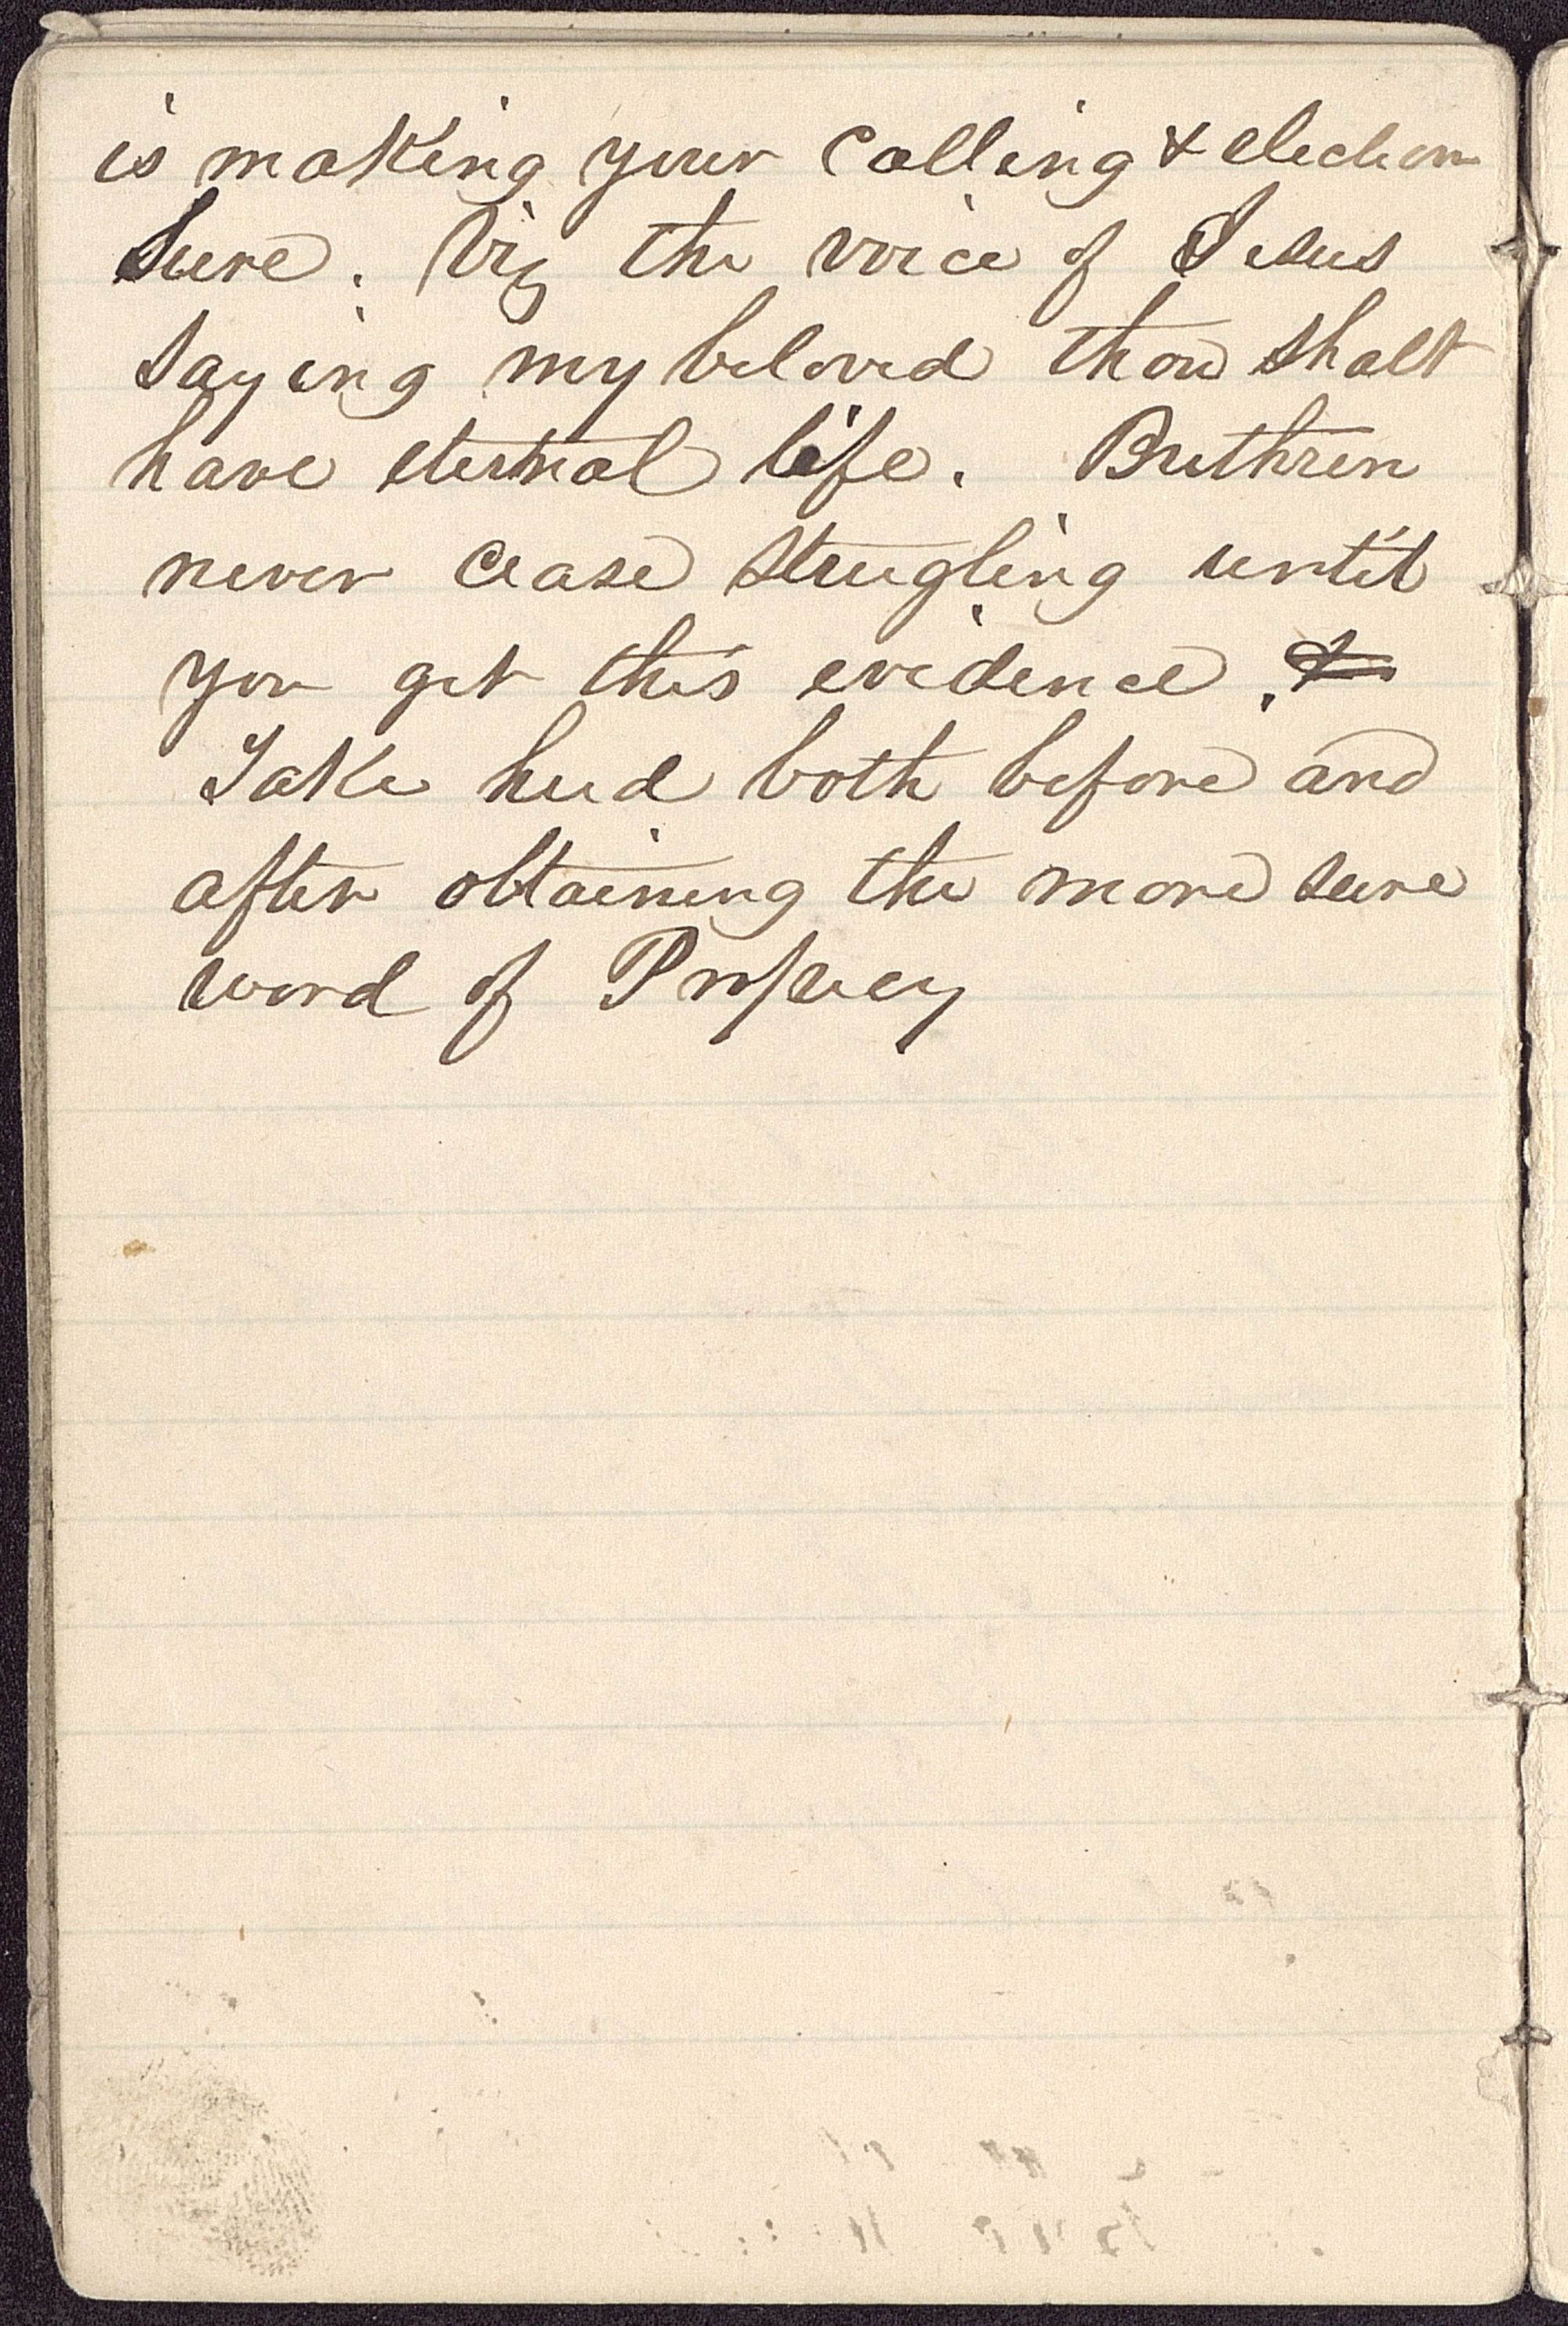 is making your Calling & election
Sure. Viz the voice of Jesus
saying my beloved thou shalt
have eternal life. Brethren
never cease strugling until
you get this evidence. &
Take heed both before and
after obtaining the more sure
word of Prophecy